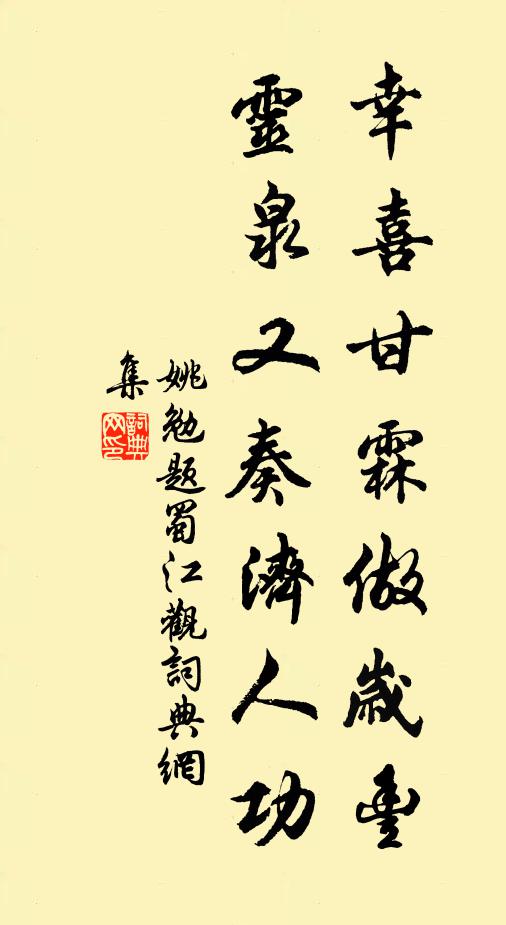 幸喜甘霖做歲豐
靈泉又奏濟人功
姚勉題蜀江觀詞典網
集
詞典
网印